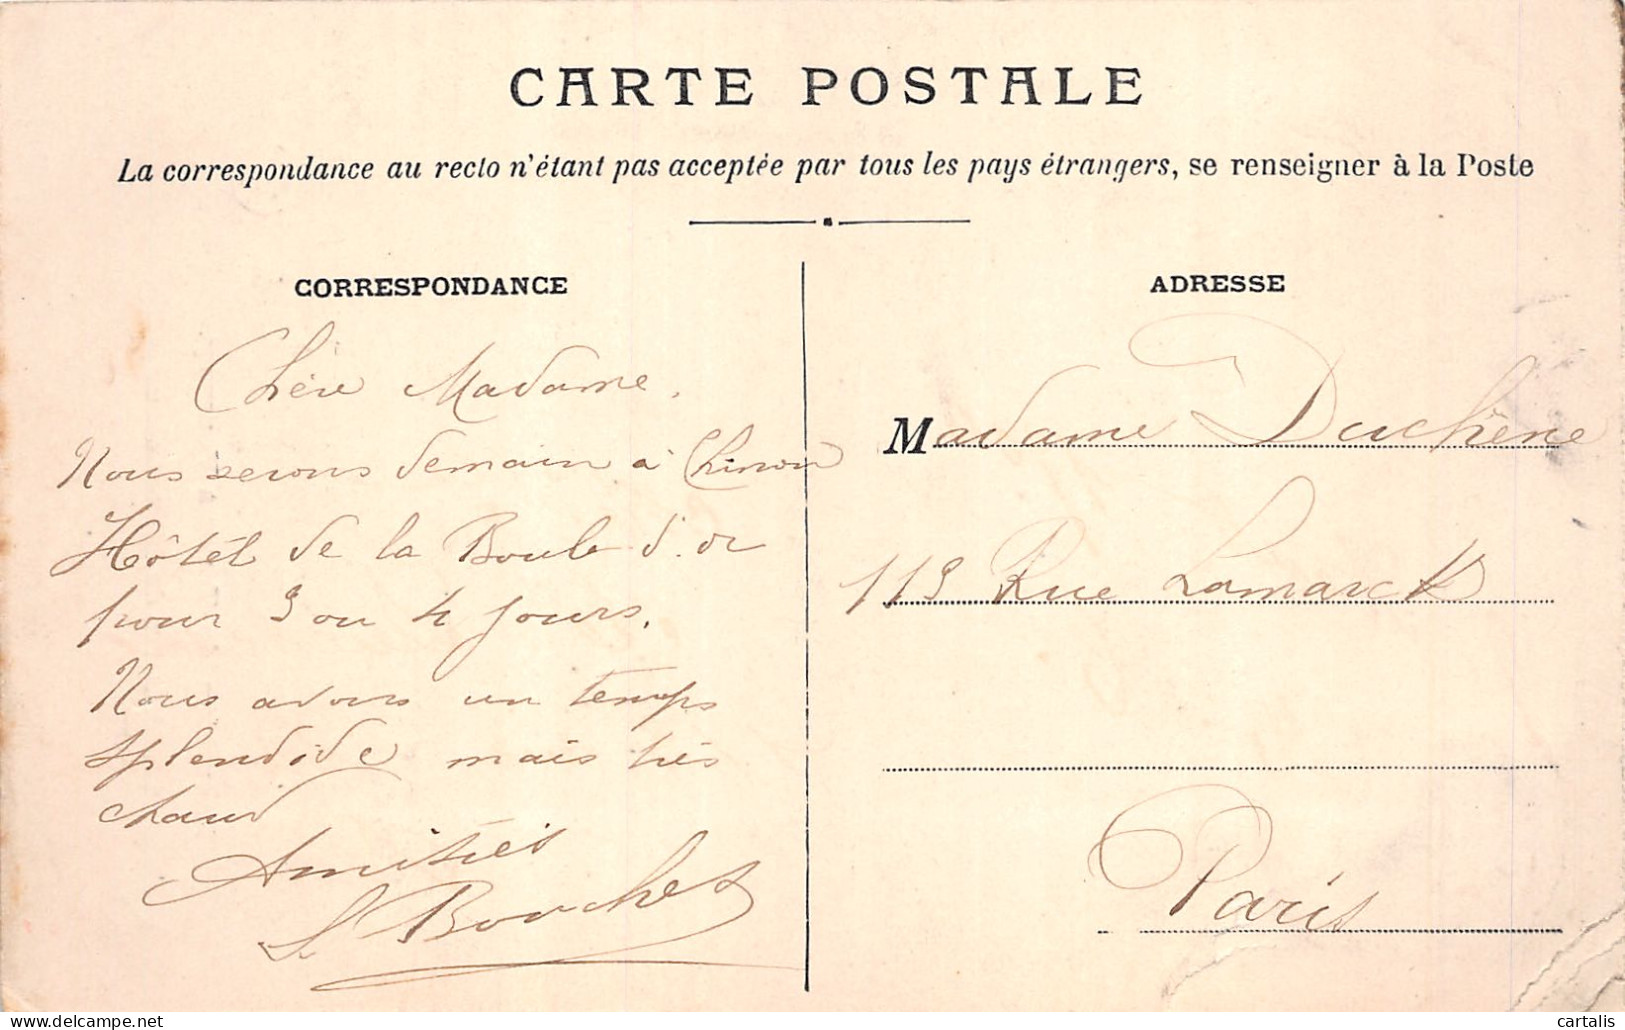 CARTE POSTALE
La correspondance au recto n'étant pas acceptée par tous les pays étrangers, se renseigner à la Poste
CORRESPONDANCE
Chère Madame.
Nous serons demain à Chinon
Hôtel de la Boule d'or
pour 3 ou 4 jours.
Nous avons un temps
splendide mais très
chaud
Amitiés
L. Bouchet
ADRESSE
Madame Duchêne
113 Rue Lamarck
Paris
cartalis